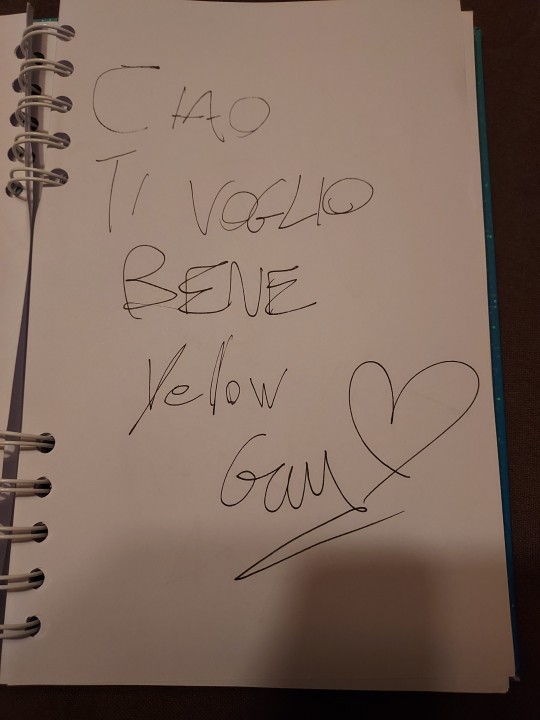 CIAO
TI VOGLIO
BENE
Yellow
Gay